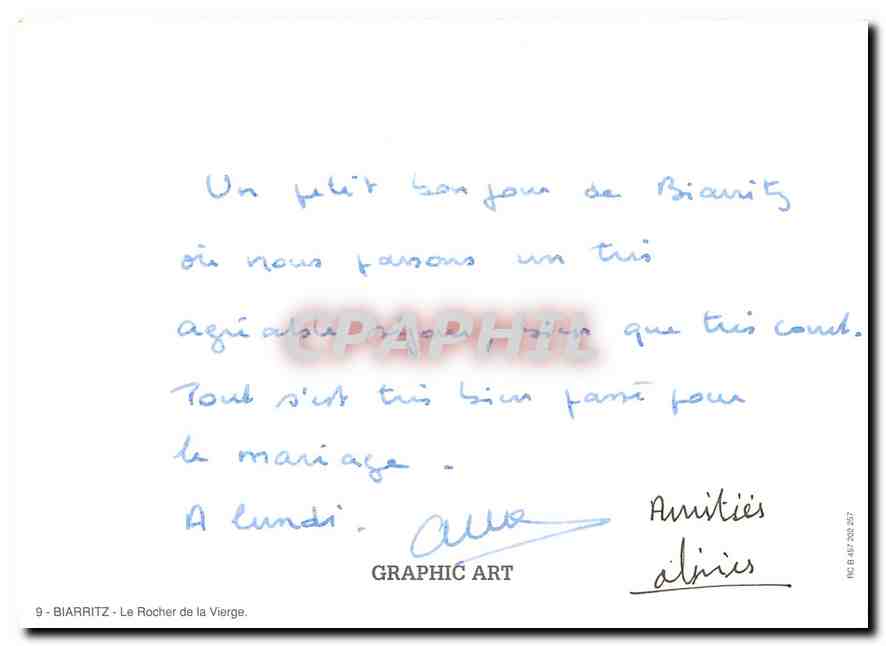 Un petit bonjour de Biarritz
où nous passons un très
agréable séjour bien que très court.
Tout s'est très bien passé pour
le mariage.
A lundi.
Amitiés
GRAPHIC ART
9 - BIARRITZ - Le Rocher de la Vierge.
RC B 457 202 257
CPAPHIL